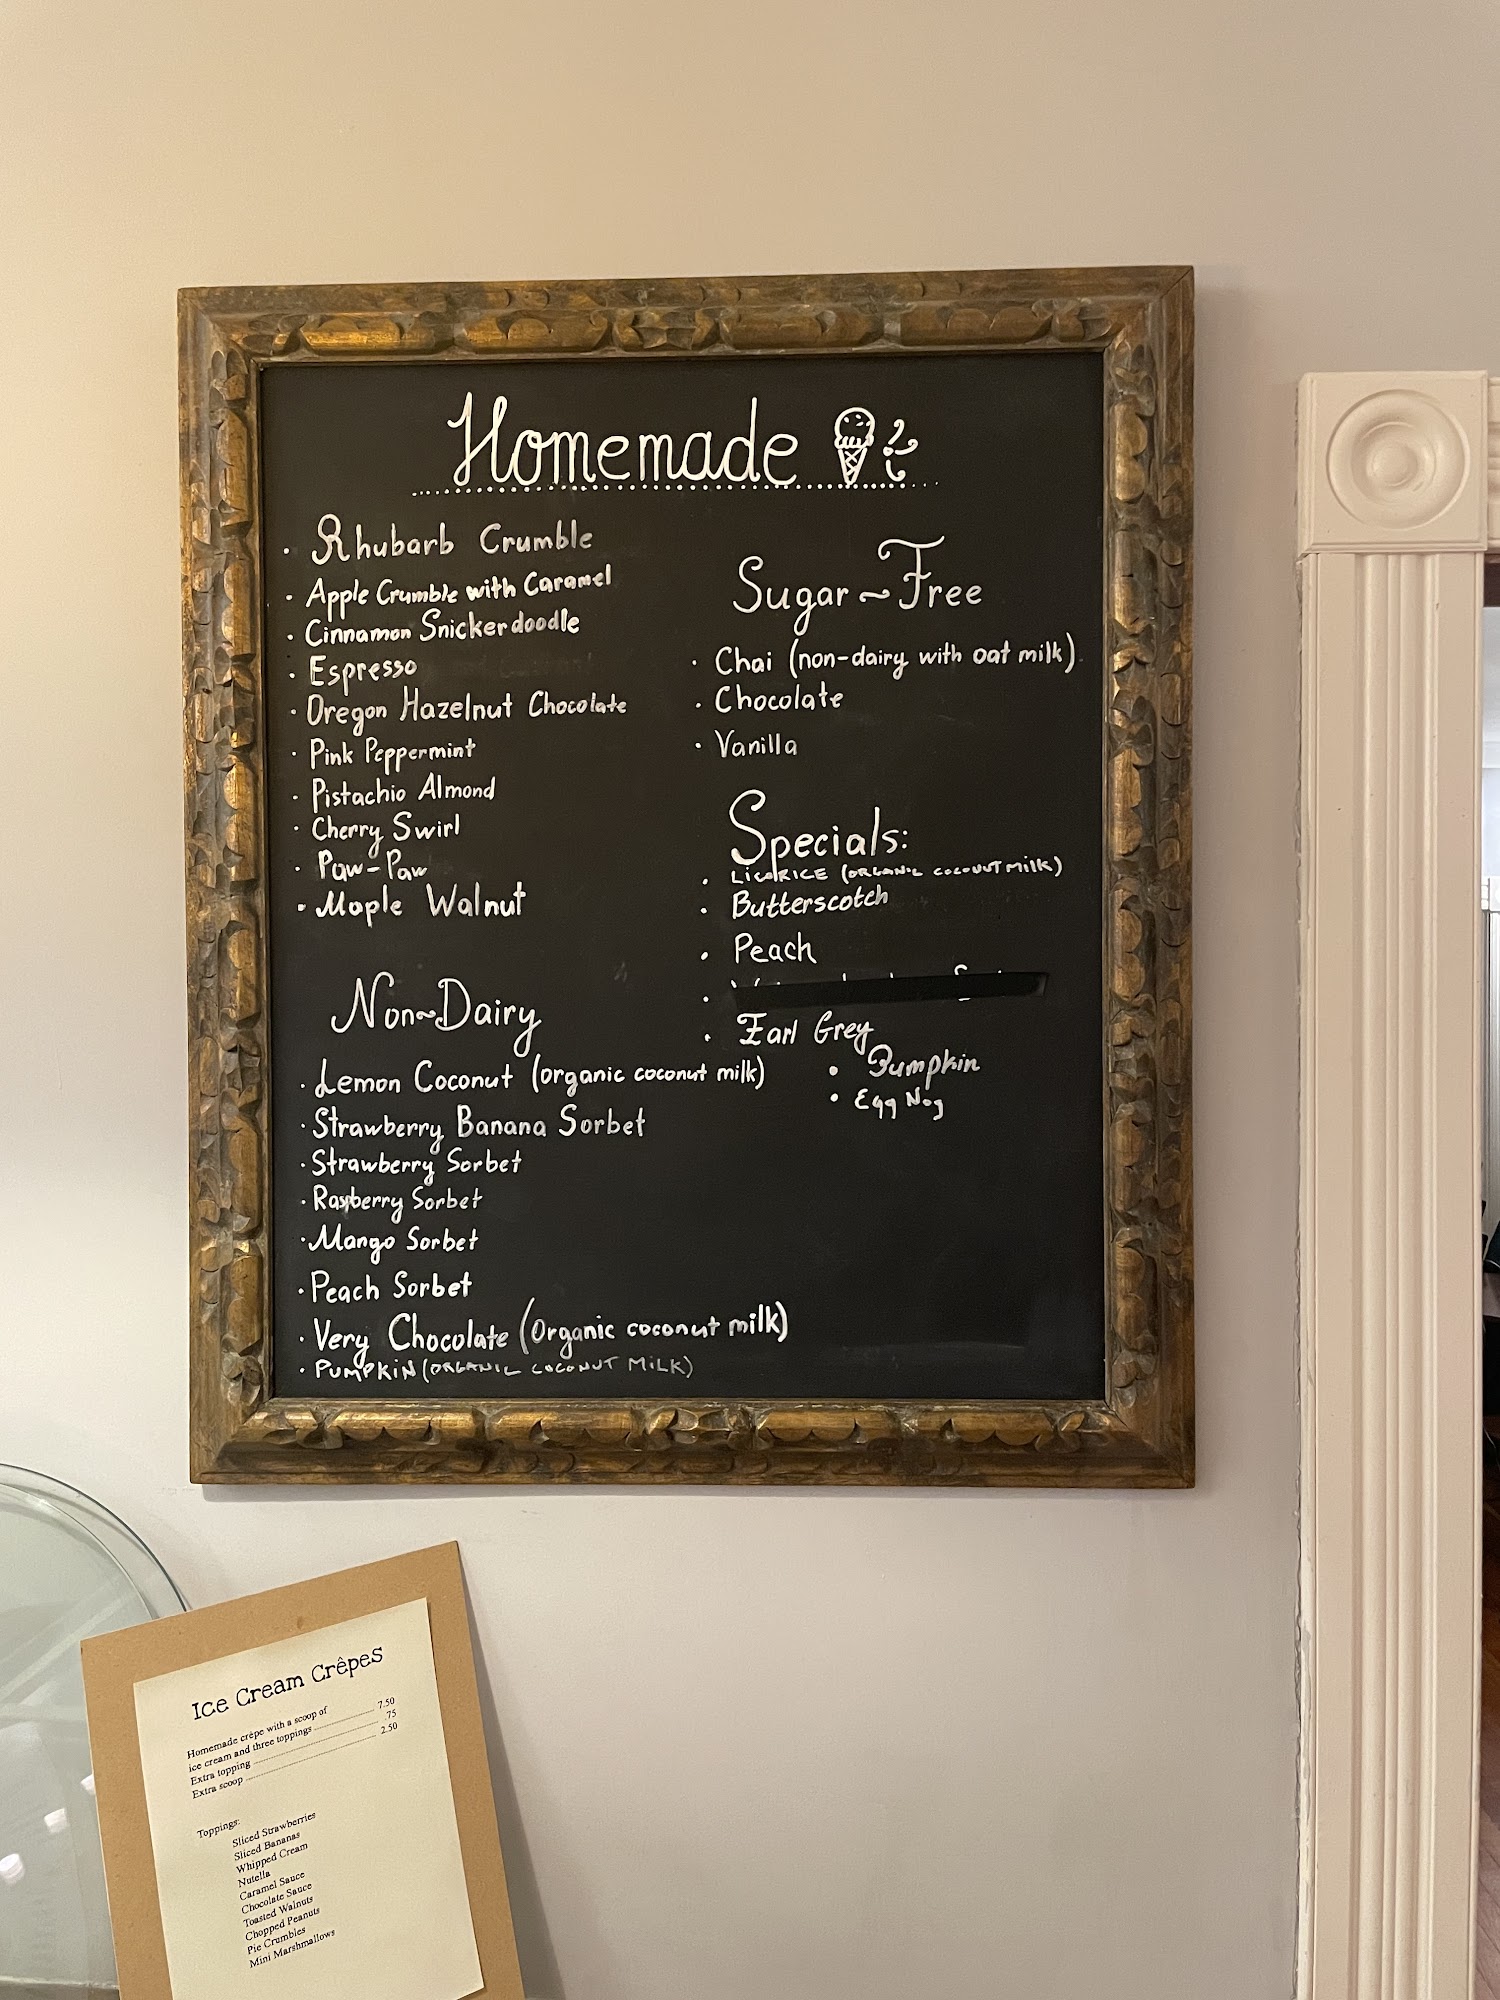 Homemade
· Rhubarb Crumble
· Apple Crumble with Caramel
· Cinnamon Snickerdoodle
· Espresso
· Oregon Hazelnut Chocolate
· Pink Peppermint
· Pistachio Almond
· Cherry Swirl
· Paw-Paw
· Maple Walnut
Non~Dairy
· Lemon Coconut (organic coconut milk)
· Strawberry Banana Sorbet
· Strawberry Sorbet
· Raspberry Sorbet
· Mango Sorbet
· Peach Sorbet
· Very Chocolate (Organic coconut milk)
· PUMPKIN (ORGANIC COCONUT MILK)
Sugar~Free
· Chai (non-dairy with oat milk)
· Chocolate
· Vanilla
Specials:
· LICORICE (ORGANIC COCONUT MILK)
· Butterscotch
· Peach
· Earl Grey
· Pumpkin
· Egg Nog
Ice Cream Crêpes
Homemade crêpe with a scoop of
ice cream and three toppings 7.50
Extra topping .75
Extra scoop 2.50
Toppings:
Sliced Strawberries
Sliced Bananas
Whipped Cream
Nutella
Caramel Sauce
Chocolate Sauce
Toasted Walnuts
Chopped Peanuts
Pie Crumbles
Mini Marshmallows